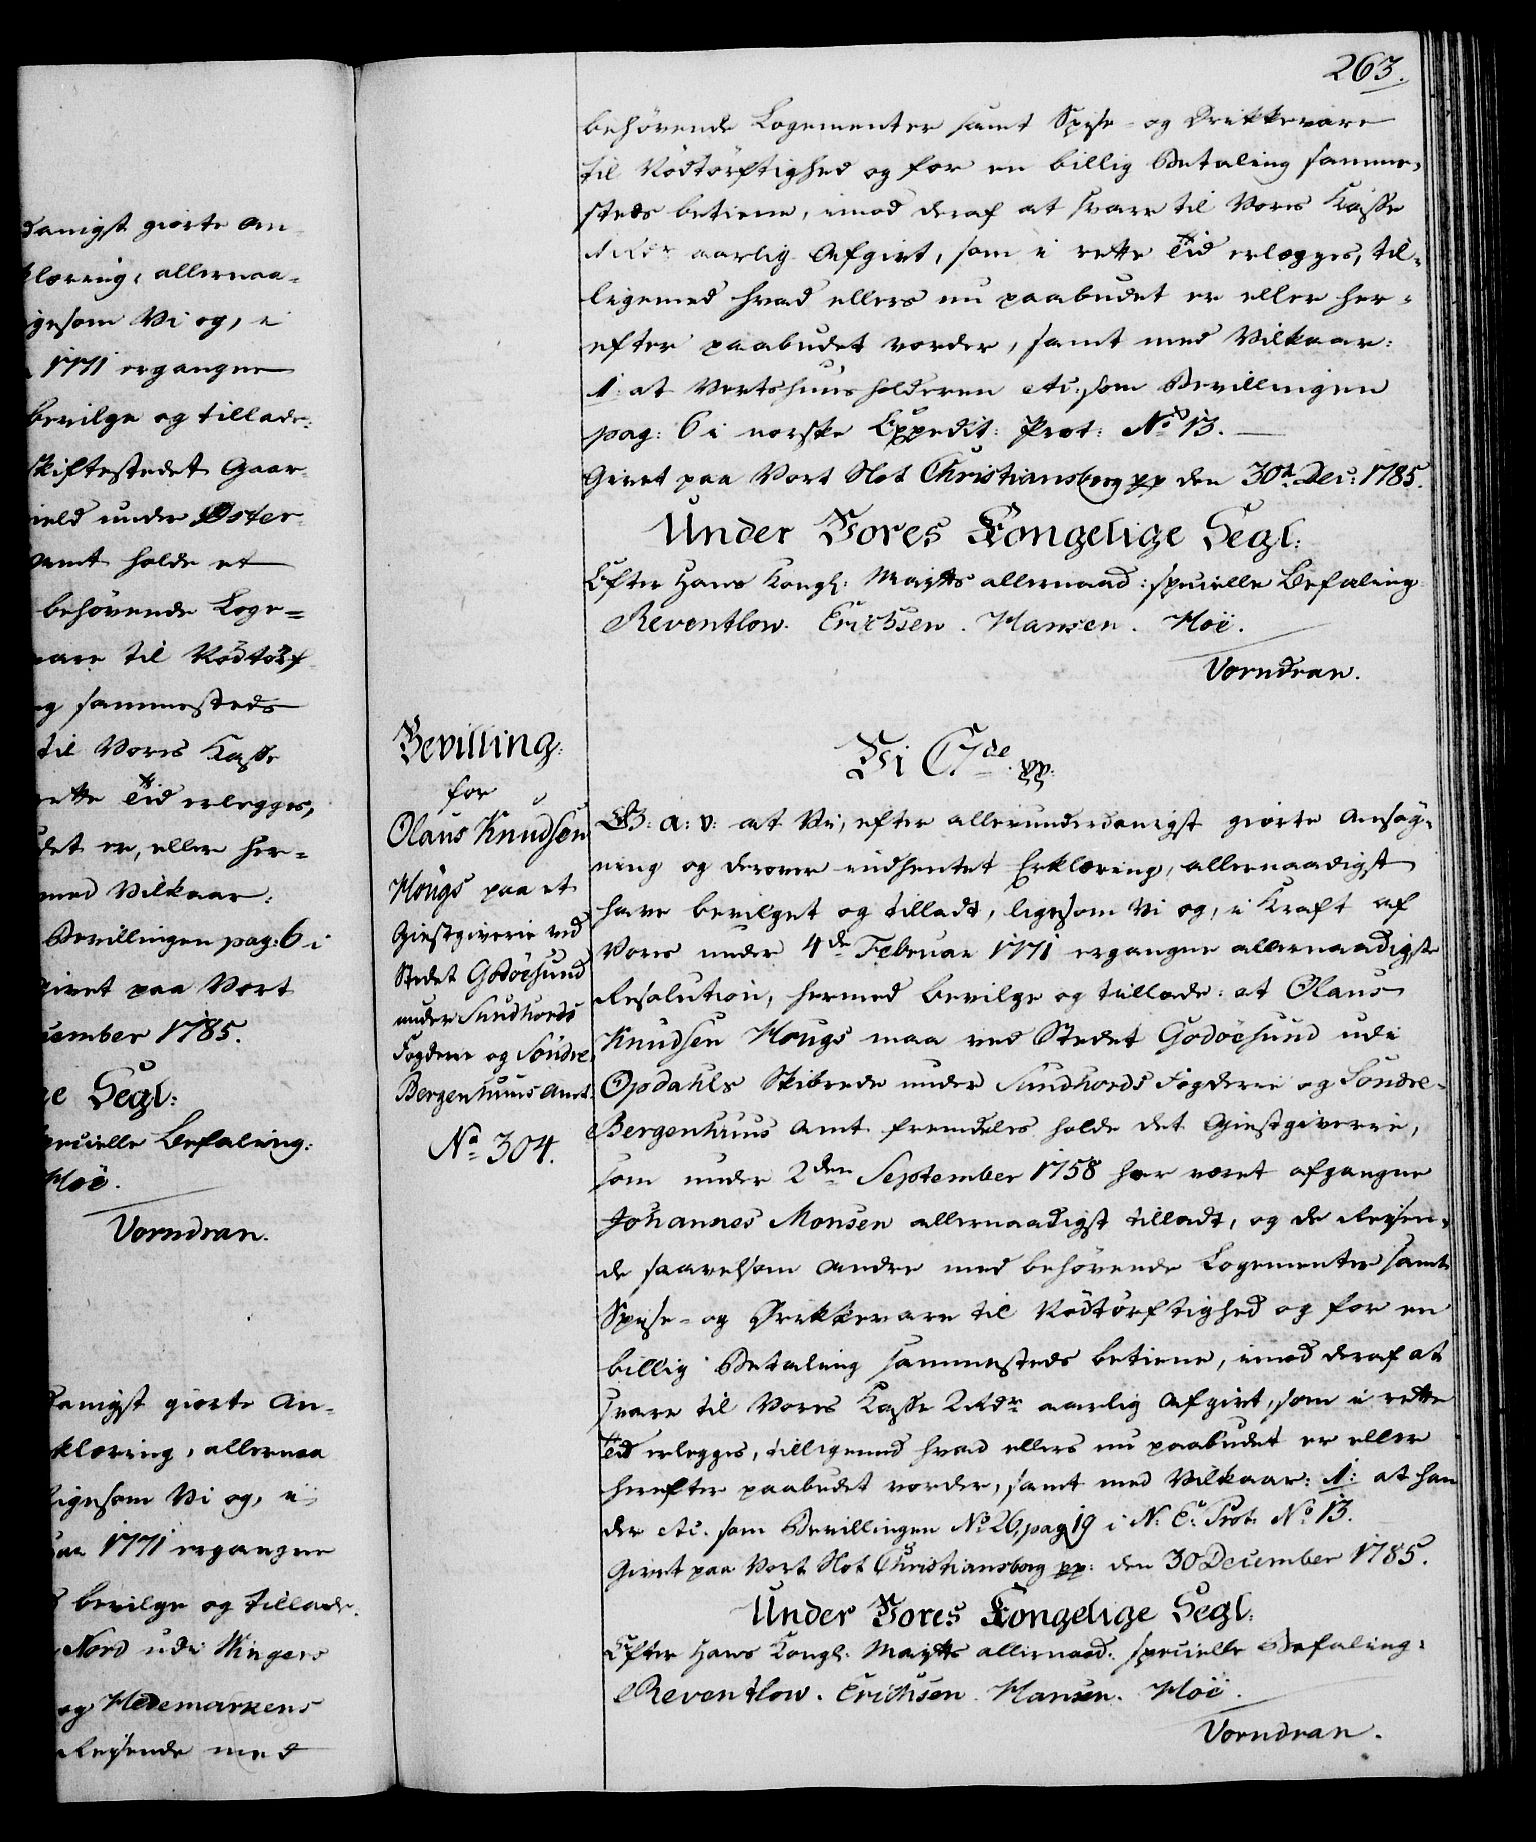 danigst giorte An-
klæring, allernaa-
igesom Vi og, i
1771 ergangne
bevilge og tillade:
Skiftestedet Gaar
ield under Øster-
Amt holde et
behøvende Loge-
vare til Nødtørf
g sammesteds
til Vores Kasse
rette Tid erlegges,
det er, eller her-
med Vilkaar:
Bevillingen pag: 6 i
Givet paa Vort
cember 1785.
ge Segl:
specielle Befaling:
Hoë.
Vorndran.
danigst giorte An-
klæring, allernaa
ligesom Vi og, i
1771 ergangne
bevilge og tillade
Nord udi Wingers
og Hedemarkens
Reisende med
263.
behøvende Logementer samt Spise- og Drikkevare
til Nödtörftighed og for en billig Betaling samme-
steds betiene, imod deraf at svare til Vores Kasse
Rdr aarlig Afgivt, som i rette Tid erlægges, til-
ligemed hvad ellers nu paabudet er eller her-
efter paabudet vorder, samt med Vilkaar:
1: at Vertshuusholderen etc: som Bevillingen
pag: 6 i norske Expedit: Prot: No 13.
Givet paa Vort Slot Christiansborg pp den 30t Dec: 1785.
Under Vores Kongelige Segl:
Efter Hans Kongl: Maytts allernaad: specielle Befaling
Reventlow. Erichsen. Hansen. Hoë.
Vorndran.
Bevilling:
for
Olaus Knudsen
Hougs paa et
Giestgiverie ved
Stedet Godöesund
under Sundhords
Fogderie og Söndre
Bergenhuus Amt.
No 304.
Vi C7de pp:
G: a: v: at Vi, efter allerunderdanigst giorte Ansög-
ning og derover indhentet Erklæring, allernaadigst
have bevilget og tilladt, ligesom Vi og, i Kraft af
Vores under 4de Februar 1771 ergangne allernaadigste
Resolution, hermed bevilge og tillade: at Olaus
Knudsen Hougs maa ved Stedet Godöesund udi
Opdahls Skibrede under Sundhords Fogderie og Söndre-
Bergenhuus Amt fremdeles holde det Giestgiverie,
som under 2den September 1758 har været afgangne
Johannes Monsen allernaadigst tilladt, og de Reisen-
de saavelsom Andre med behövende Logementer samt
Spise- og Drikkevare til Nödtörftighed og for en
billig Betaling sammesteds betiene, imod deraf at
svare til Vores Kasse 2 Rdr aarlig Afgivt, som i rette
Tid erlegges, tilligemed hvad ellers nu paabudet er eller
herefter paabudet vorder, samt med Vilkaar: 1: at han
der etc. som Bevillingen No 26, pag 19 i N: E: Prot: No 13.
Givet paa Vort Slot Christiansborg pp: den 30 December 1785.
Under Vores Kongelige Segl:
Efter Hans Kongl: Maytts allernaad: specielle Befaling:
Reventlow. Erichsen. Hansen. Hoë.
Vorndran.